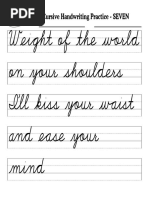 Cursive Handwriting Practice - SEVEN
Weight of the world
on your shoulders
I'll kiss your waist
and ease your
mind